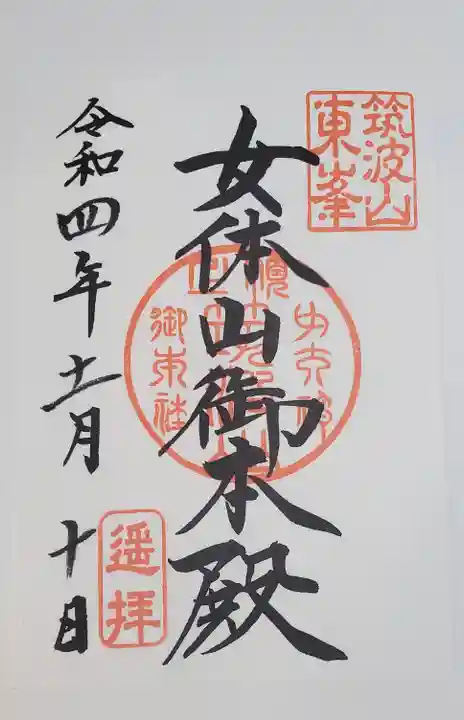 筑波山
東峯
女体山御本殿
遥拝
令和四年十一月 十日